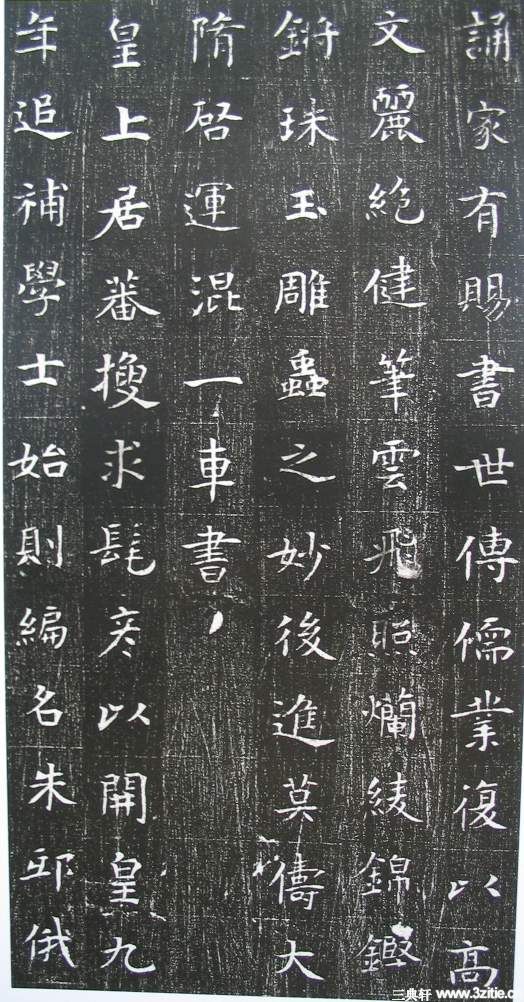 誦家有賜書世傳儒業復以高
文麗絶健筆雲飛照爛綾錦鏗
鏘珠玉雕蟲之妙後進莫儔大
隋啓運混一車書
皇上居蕃搜求髦彦以開皇九
年追補學士始則編名朱邸俄
三典轩 www.3zitie.c